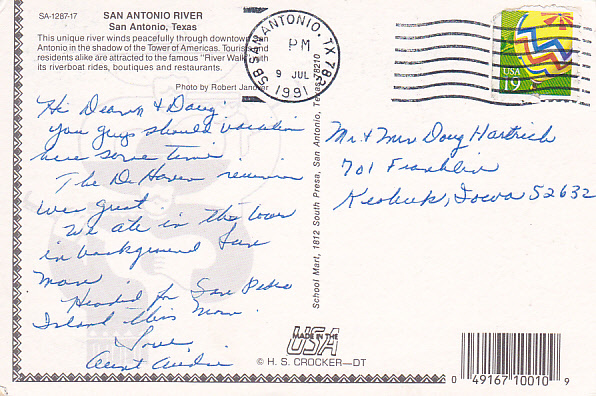 SA-1287-17
SAN ANTONIO RIVER
San Antonio, Texas
This unique river winds peacefully through downtown San
Antonio in the shadow of the Tower of Americas. Tourists and
residents alike are attracted to the famous "River Walk" with
its riverboat rides, boutiques and restaurants.
Photo by Robert Jand
SAN ANTONIO, TX 782
PM
9 JUL
1991
USA
19
Hi Deann & Doug:
You guys should vacation
here some time.
The De Haven reunion
was great.
We ate in the tower
in background Sun
Morn.
Headed for San Padre
Island this Morn.
Love
Aunt
Mr & Mrs Doug Hartrich
701 Franklin
Keokuk, Iowa 52632
School Mart, 1812 South Presa, San Antonio, Texas 78210
MADE IN THE
USA
© H. S. CROCKER—DT
0 49167 10010 9